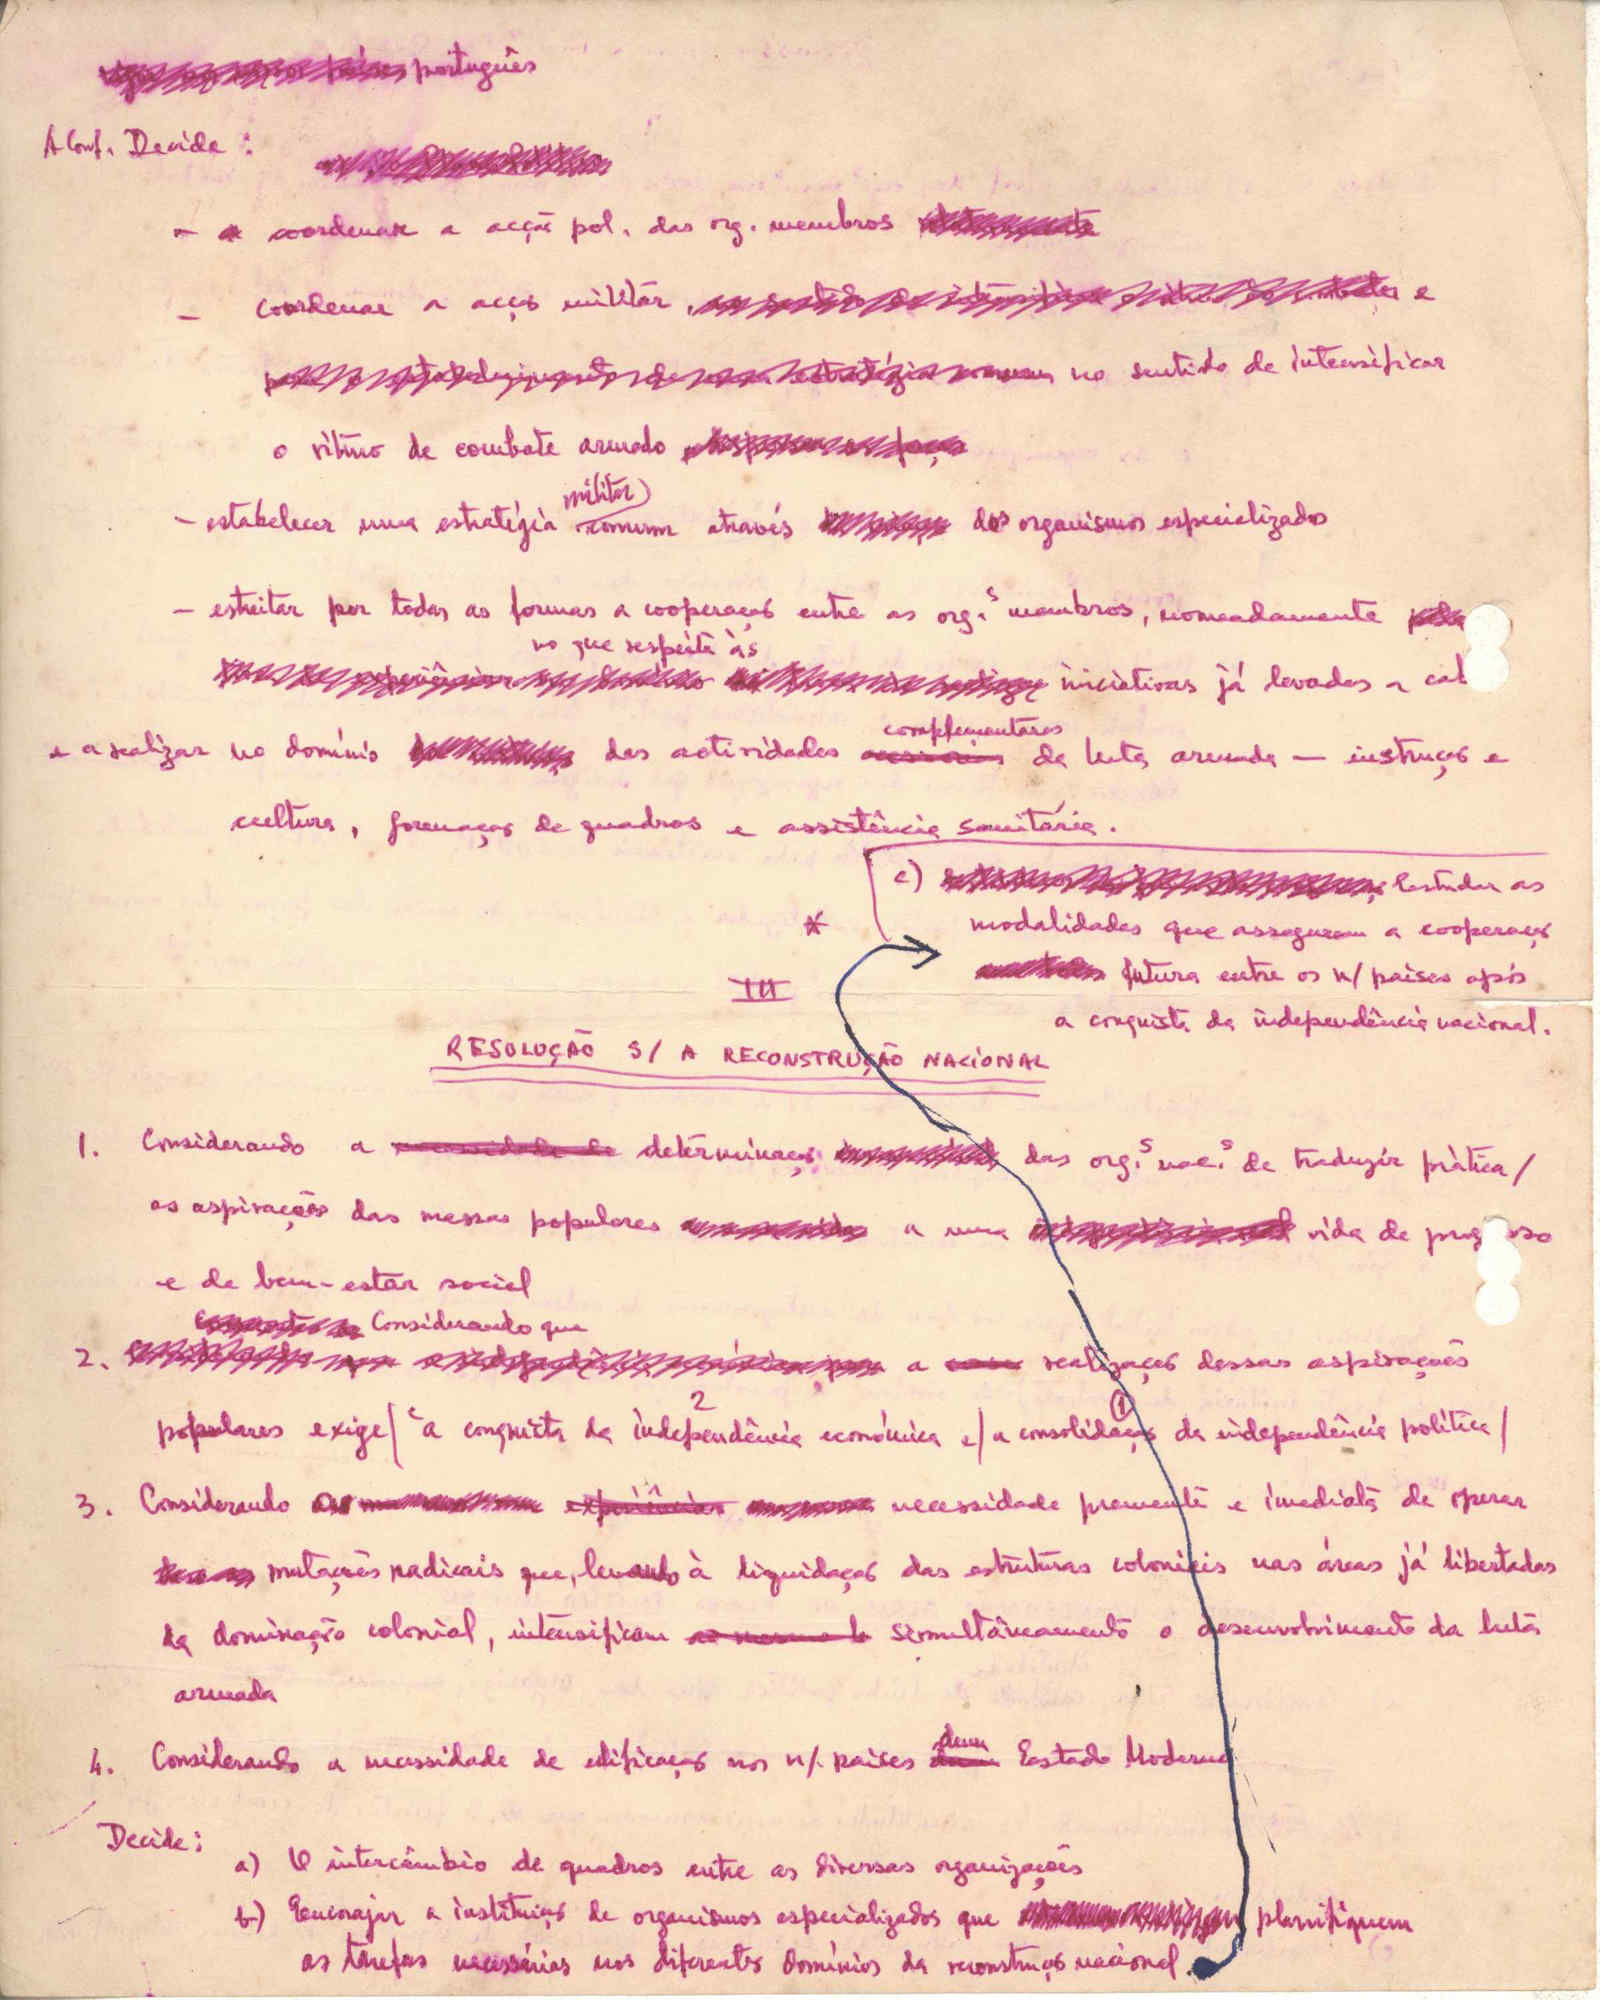 português
A Conf. Decide:
- coordenar a acção pol. das org. membros
- coordenar a acção militar, e
no sentido de intensificar
o ritmo de combate armado
militar
- estabelecer uma estratégia comum através dos organismos especializados
- estreitar por todas as formas a cooperação entre as org.s membros, nomeadamente
no que respeita às
iniciativas já levadas a cab
complementares
e a realizar no domínio das actividades da luta armada — instrução e
cultura, formação de quadros e assistência sanitária.
c) Estudar as
* modalidades que asseguram a cooperação
futura entre os n/ países após
a conquista da independência nacional.
III
RESOLUÇÃO S/ A RECONSTRUÇÃO NACIONAL
1. Considerando a necessidade de determinação das org.s nac.s de traduzir prática/
as aspirações das massas populares a uma vida de prog sso
e de bem-estar social
Considerando que
2. a realização dessas aspirações
2 1
populares exige/ a conquista da independência económica e/ a consolidação da independência política/
3. Considerando experiências necessidade premente e imediata de operar
mutações radicais que, levando à liquidação das estruturas coloniais nas áreas já libertadas
da dominação colonial, intensificam ao mesmo t simultâneamente o desenvolvimento da luta
armada
4. Considerando a necessidade de edificação nos n/. países dum Estado Moderno
Decide:
a) O intercâmbio de quadros entre as diversas organizações
b) Encorajar a instituição de organismos especializados que planifiquem
as tarefas necessárias nos diferentes domínios da reconstrução nacional.